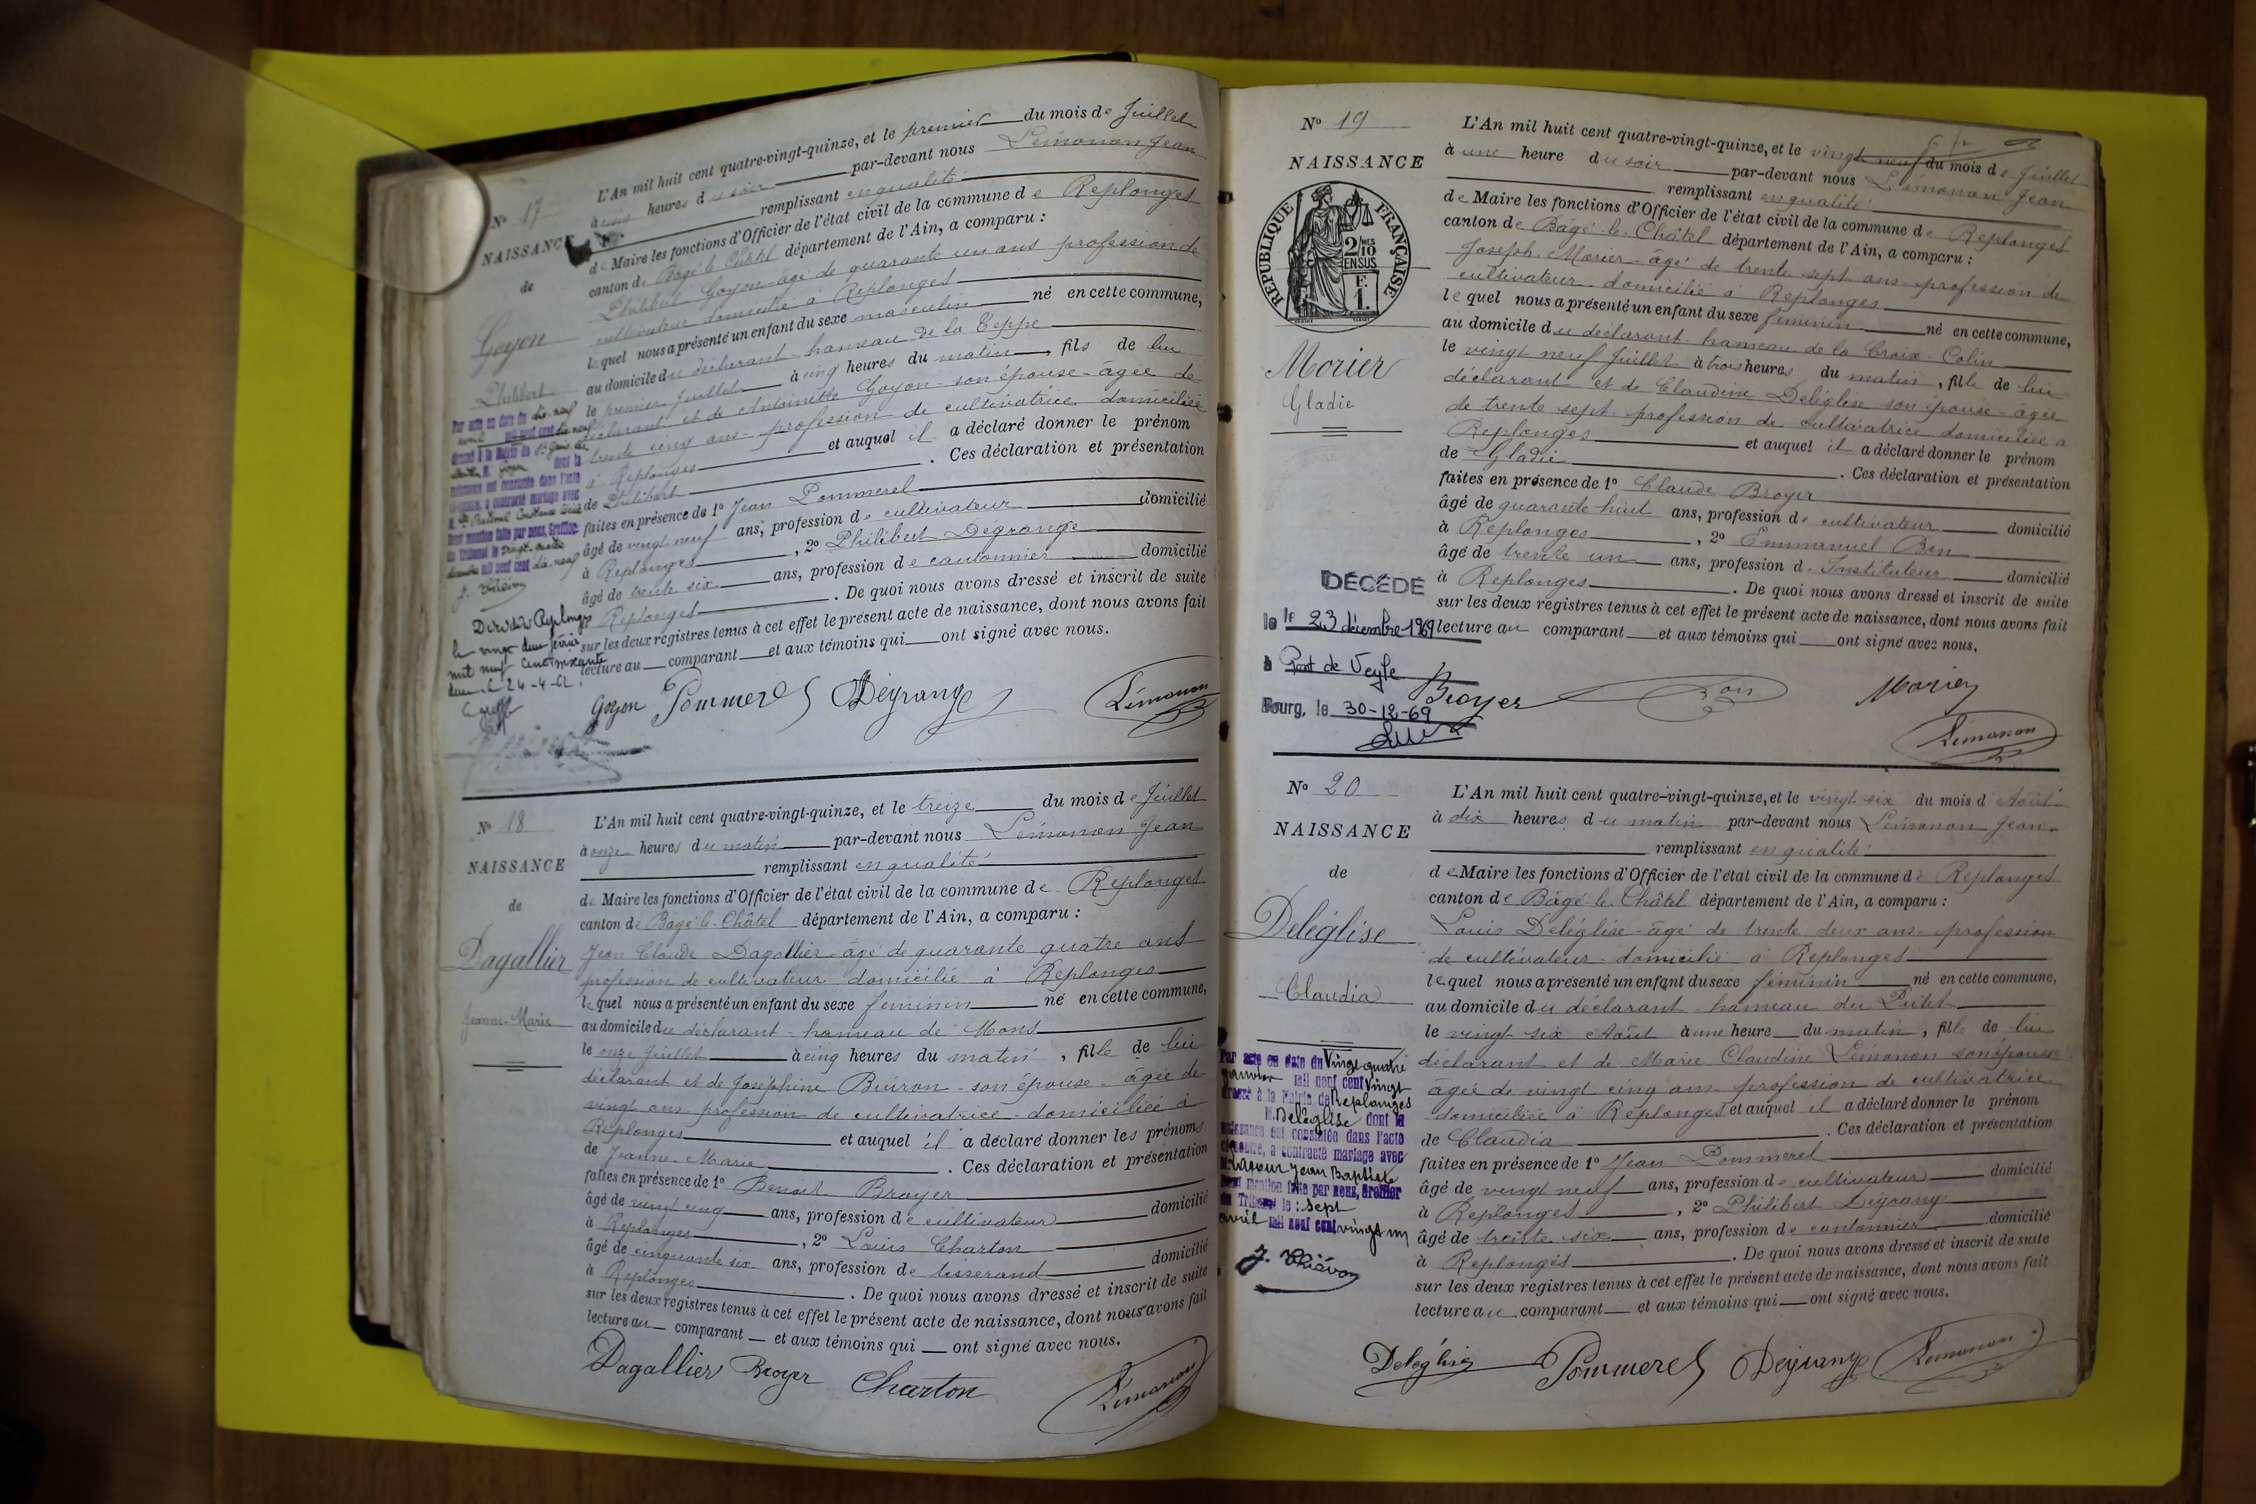 N° 17
NAISSANCE
de
Goyon
Philibert
L'An mil huit cent quatre-vingt-quinze, et le premier du mois de Juillet
à heures du soir par-devant nous Lémonon Jean
remplissant en qualité
de Maire les fonctions d'Officier de l'état civil de la commune de Replonges
canton de Bâgé-le-Châtel département de l'Ain, a comparu :
Philibert Goyon âgé de quarante un ans profession de
cultivateur domicilié à Replonges
lequel nous a présenté un enfant du sexe masculin né en cette commune,
au domicile du déclarant hameau de la Teppe
le premier Juillet à cinq heures du matin, fils de lui
déclarant et de Antoinette Goyon son épouse âgée de
trente cinq ans profession de cultivatrice domiciliée
à Replonges et auquel il a déclaré donner le prénom
de Philibert . Ces déclaration et présentation
faites en présence de 1° Jean Pommerel
âgé de vingt neuf ans, profession de cultivateur domicilié
à Replonges , 2° Philibert Degrange
âgé de trente six ans, profession de cantonnier domicilié
Replonges . De quoi nous avons dressé et inscrit de suite
sur les deux registres tenus à cet effet le présent acte de naissance, dont nous avons fait
lecture au comparant et aux témoins qui ont signé avec nous.
Par acte en date du dix-neuf
avril mil neuf cent dix neuf
dressé à la Mairie de
M. Goyon dont la
naissance est constatée dans l'acte
ci-contre, a contracté mariage avec
M.
Dont mention faite par nous, Greffier
du Tribunal le vingt-
mil neuf cent dix-neuf
Décédé à Replonges
le vingt deux février
mil neuf cent soixante
deux 24-4-62.
Goyon Pommerel Degrange Lémonon
N° 18
NAISSANCE
de
Dagallier
Jeanne-Marie
L'An mil huit cent quatre-vingt-quinze, et le treize du mois de Juillet
à onze heures du matin par-devant nous Lémonon Jean
remplissant en qualité
de Maire les fonctions d'Officier de l'état civil de la commune de Replonges
canton de Bagé-le-Châtel département de l'Ain, a comparu :
Jean Claude Dagallier âgé de quarante quatre ans
profession de cultivateur domicilié à Replonges
lequel nous a présenté un enfant du sexe féminin né en cette commune,
au domicile du déclarant - hameau de Mons
le onze Juillet à cinq heures du matin , fille de lui
déclarant et de Joséphine Buiron - son épouse - âgée de
vingt ans profession de cultivatrice - domiciliée à
Replonges et auquel il a déclaré donner les prénoms
de Jeanne-Marie . Ces déclaration et présentation
faites en présence de 1° Benoit Broyer
âgé de vingt cinq ans, profession de cultivateur domicilié
à Replonges , 2° Louis Charton
âgé de cinquante six ans, profession de tisserand domicilié
à Replonges . De quoi nous avons dressé et inscrit de suite
sur les deux registres tenus à cet effet le présent acte de naissance, dont nous avons fait
lecture au comparant et aux témoins qui ont signé avec nous.
Dagallier Broyer Charton Lémonon
N° 19
NAISSANCE
RÉPUBLIQUE FRANÇAISE
2/10 MES
EN SUS
F.
1.
Morier
Gladie
L'An mil huit cent quatre-vingt-quinze, et le vingt neuf du mois de Juillet
à une heure du soir par-devant nous Lémonon Jean
remplissant en qualité
de Maire les fonctions d'Officier de l'état civil de la commune de Replonges
canton de Bâgé-le-Châtel département de l'Ain, a comparu :
Joseph Morier âgé de trente sept ans profession de
cultivateur domicilié à Replonges
lequel nous a présenté un enfant du sexe féminin né en cette commune,
au domicile du déclarant hameau de la Croix-Colin
le vingt neuf Juillet à trois heures du matin, fille de lui
déclarant et de Claudine Deléglise son épouse âgée
de trente sept profession de cultivatrice domiciliée à
Replonges et auquel il a déclaré donner le prénom
de Gladie . Ces déclaration et présentation
faites en présence de 1° Claude Broyer
âgé de quarante huit ans, profession de cultivateur domicilié
à Replonges , 2° Emmanuel Bon
âgé de trente un ans, profession d'Instituteur domicilié
à Replonges . De quoi nous avons dressé et inscrit de suite
sur les deux registres tenus à cet effet le présent acte de naissance, dont nous avons fait
lecture au comparant et aux témoins qui ont signé avec nous.
DÉCÉDÉ
le 23 décembre 1969
à Pont de Veyle
Bourg, le 30-12-69
Broyer Bon Morier
Lémonon
N° 20
NAISSANCE
de
Deléglise
Claudia
L'An mil huit cent quatre-vingt-quinze, et le vingt six du mois d'Août
à dix heures du matin par-devant nous Lémonon Jean
remplissant en qualité
de Maire les fonctions d'Officier de l'état civil de la commune de Replonges
canton de Bâgé-le-Châtel département de l'Ain, a comparu :
Louis Deléglise - âgé de trente deux ans - profession
de cultivateur - domicilié à Replonges
lequel nous a présenté un enfant du sexe féminin né en cette commune,
au domicile du déclarant hameau du
le vingt six Août à une heure du matin , fille de lui
déclarant et de Marie Claudine Lémonon son épouse
âgée de vingt cinq ans profession de cultivatrice
domiciliée à Replonges et auquel il a déclaré donner le prénom
de Claudia . Ces déclaration et présentation
faites en présence de 1° Jean Pommerel
âgé de vingt neuf ans, profession de cultivateur domicilié
à Replonges , 2° Philibert Degrange
âgé de trente six ans, profession de cantonnier domicilié
à Replonges . De quoi nous avons dressé et inscrit de suite
sur les deux registres tenus à cet effet le présent acte de naissance, dont nous avons fait
lecture au comparant et aux témoins qui ont signé avec nous.
Par acte en date du Vingt quatre
Janvier mil neuf cent Vingt
dressé à la Mairie de Replonges
M. Deléglise dont la
naissance est constatée dans l'acte
ci-contre, a contracté mariage avec
M. Jean Baptiste
Dont mention faite par nous, Greffier
du Tribunal le : Sept
avril mil neuf cent vingt un
Deléglise Pommerel Degrange Lémonon